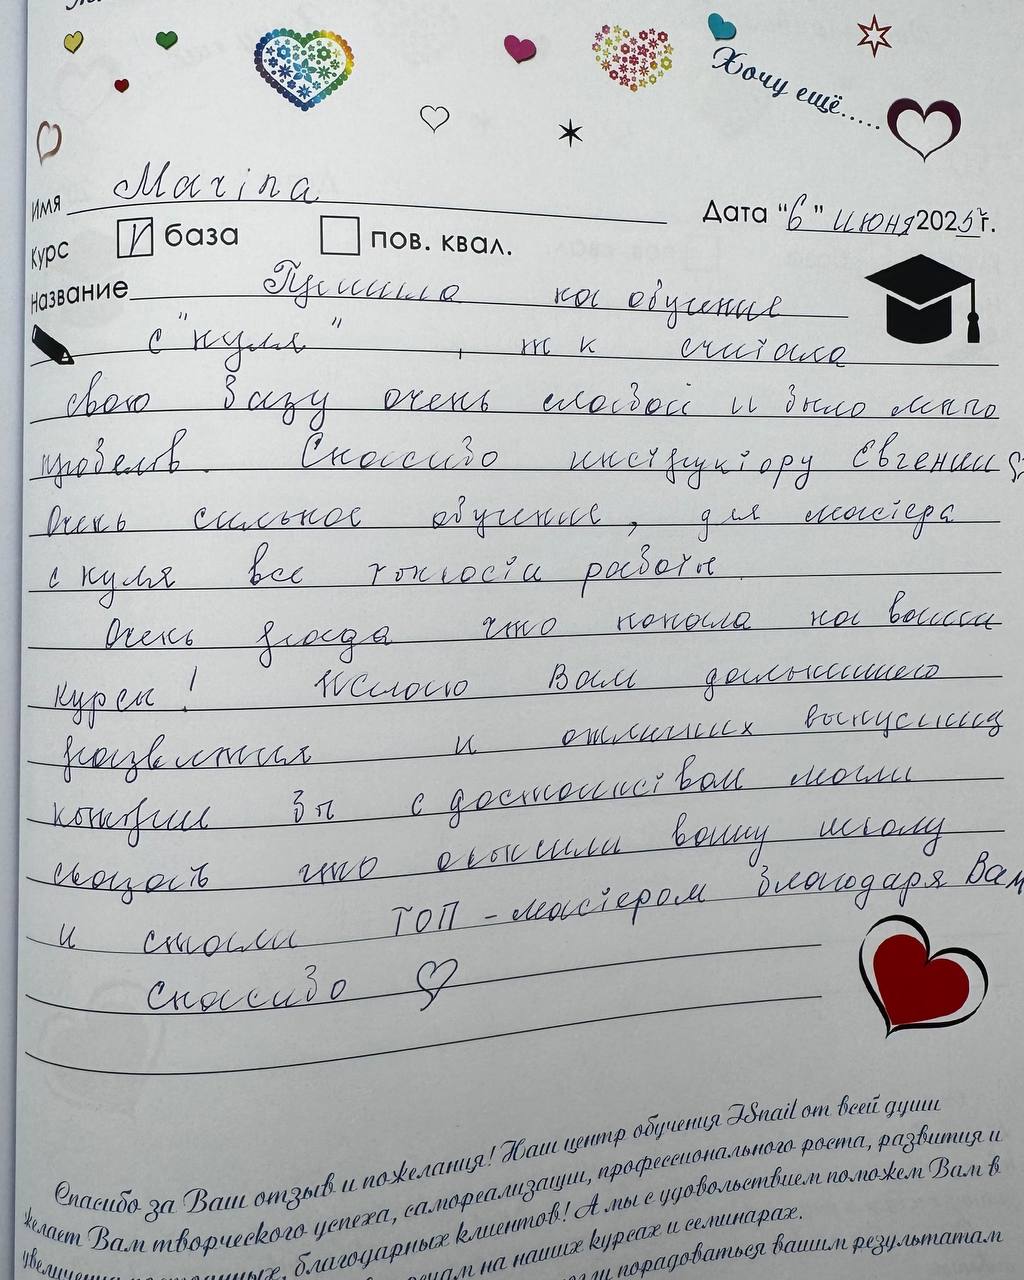 Хочу ещё.....
Имя Marina
Дата "6" июня 2025г.
Курс V база пов. квал.
Название Пришла на обучение
с "нуля", т к считала
свою базу очень слабой и было мало
пробелов. Спасибо инструктору Евгении
Очень сильное обучение, для мастера
с нуля все тонкости работы.
Очень рада что попала на ваши
курсы! Желаю Вам дальнейшего
развития и отличных выпускниц
которые бы с достоинством могли
сказать что окончили вашу школу
и стали ТОП-мастером благодаря Вам
Спасибо
Спасибо за Ваш отзыв и пожелания! Наш центр обучения ISnail от всей души
желает Вам творческого успеха, самореализации, профессионального роста, развития и
благодарных клиентов! А мы с удовольствием поможем Вам в
на наших курсах и семинарах.
порадоваться вашим результатам